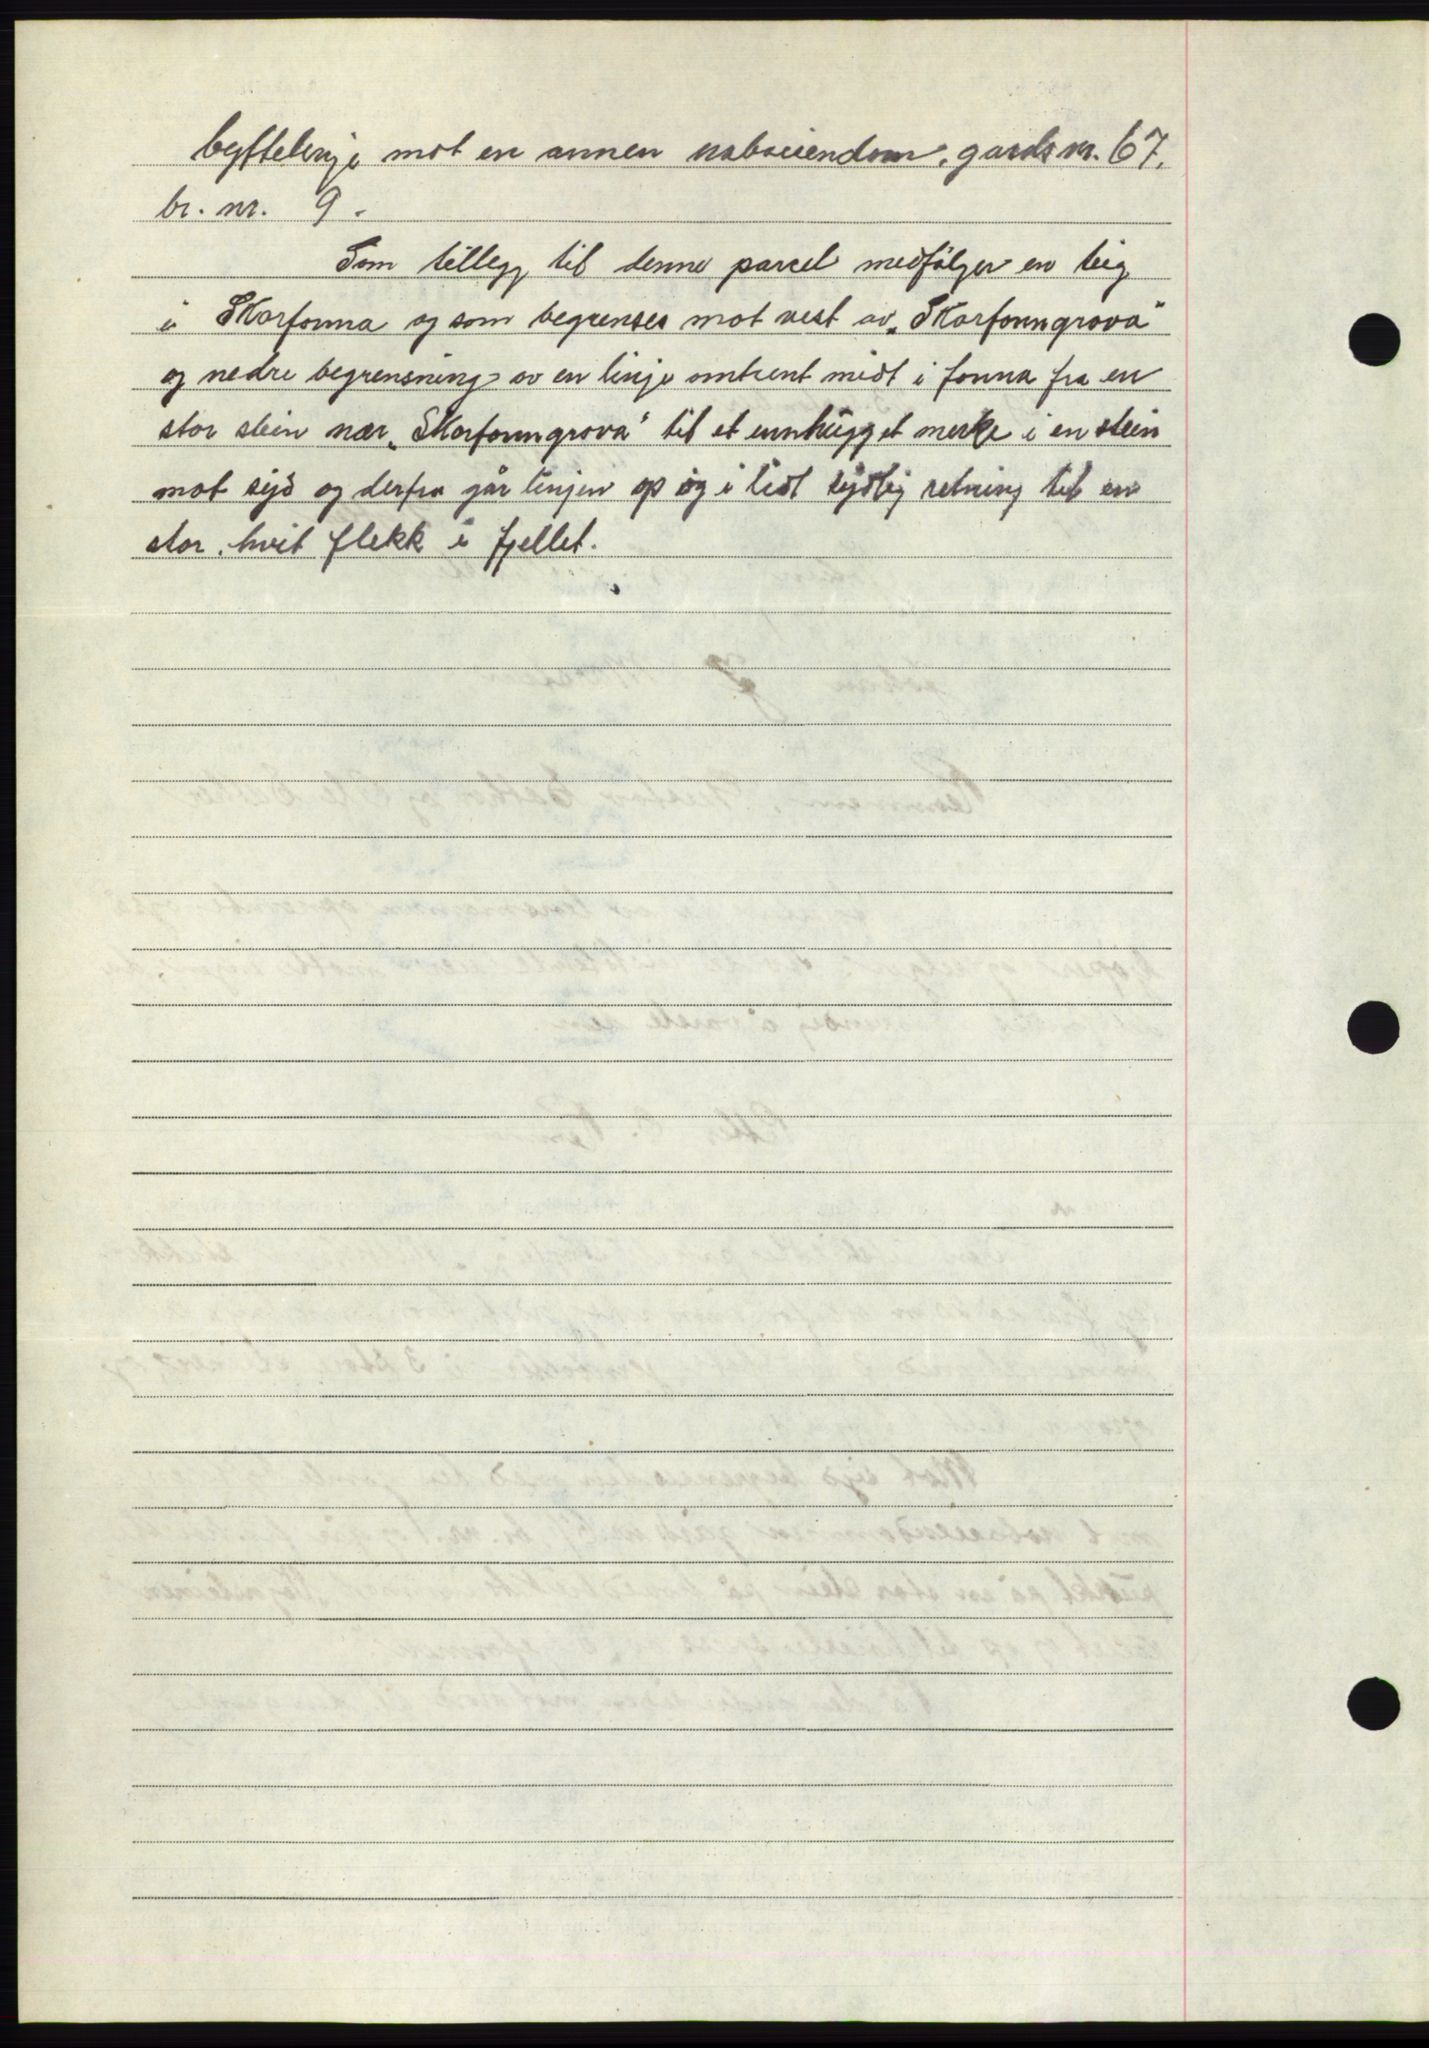 byttelinje mot en annen naboeiendom, gards nr. 67,
br. nr. 9.
Som tillegg til denne parcel medfölger en teig
i Skorfonna og som begrenses mot vest av „Skorfonngrova"
og nedre begrensning av en linje omtrent midt i fonna fra en
stor stein nær „Skorfonngrova" til et innhugget merke i en stein
mot syd og derfra går linjen op og i lidt sydlig retning til en
stor, hvit flekk i fjellet.